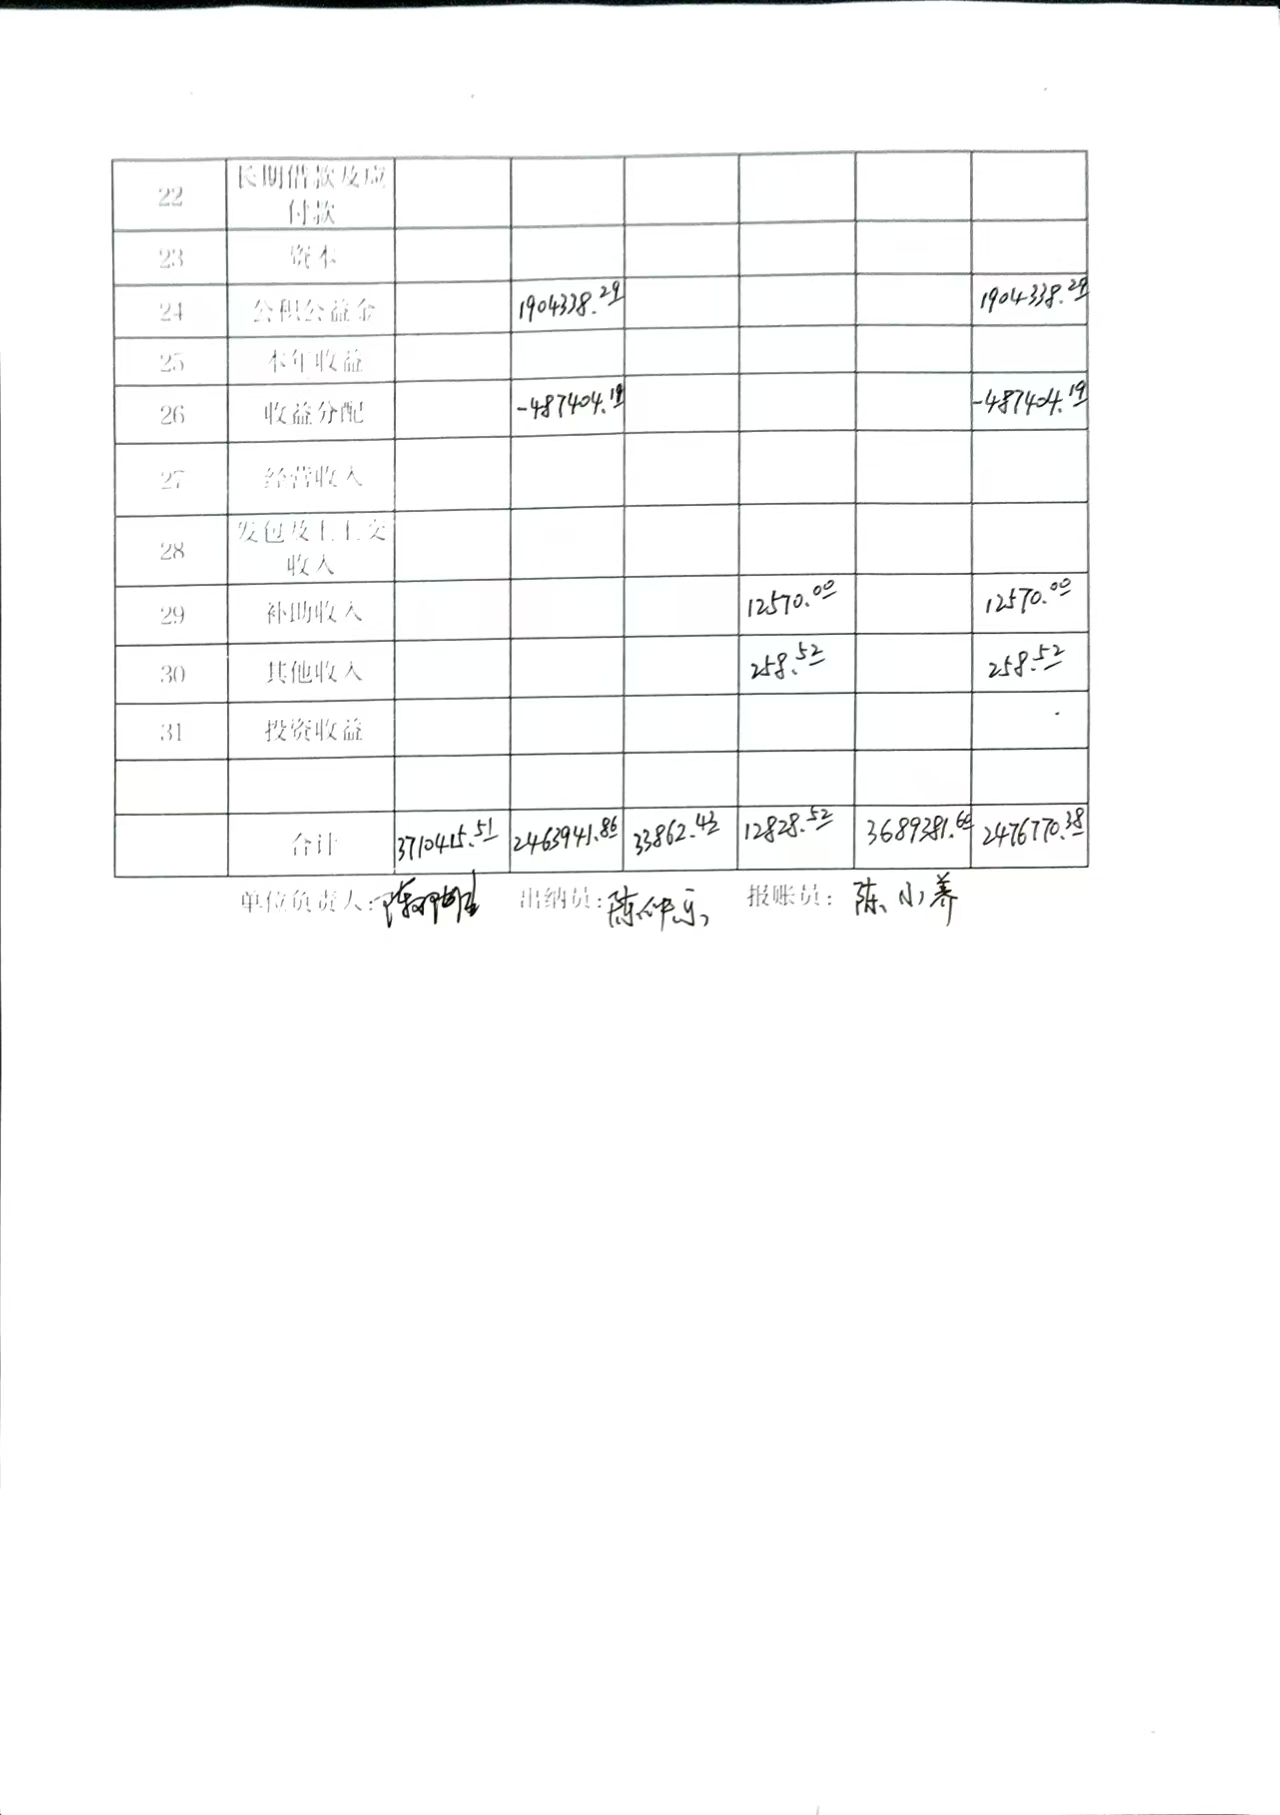 22 长期借款及应
付款
23 资本
24 公积公益金 1904338.29 1904338.29
25 本年收益
26 收益分配 -487404.19 -487404.19
27 经营收入
28 发包及上上交
收入
29 补助收入 12570.00 12570.00
30 其他收入 258.52 258.52
31 投资收益
合计 3710415.51 2463941.86 33862.43 12828.52 3689381.60 2476770.38
单位负责人: 陈 出纳员: 陈 报账员: 陈小养